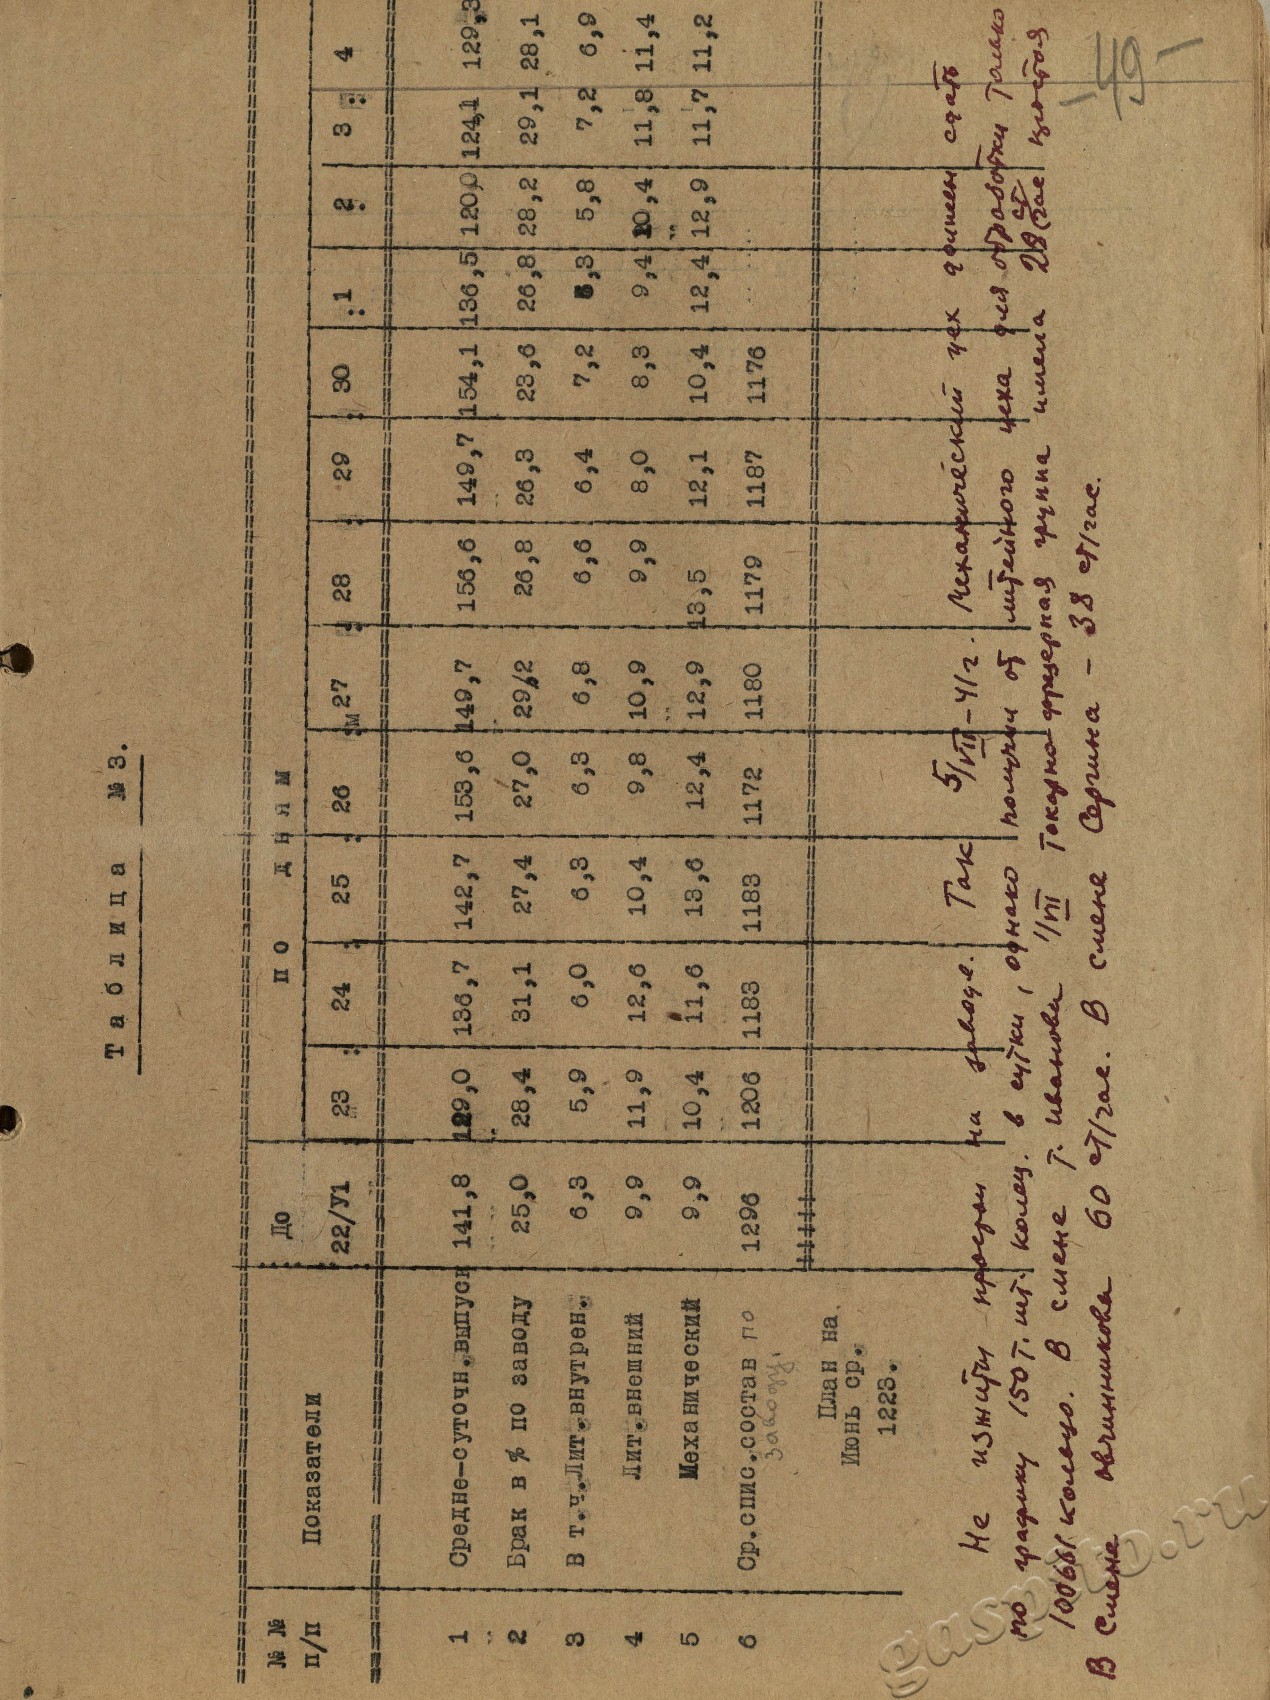 Таблица №3.
№№ п/п Показатели До 22/У1 ПО ДНЯМ
23 24 25 26 27 28 29 30 1 2 3 4
1 Средне-суточн.выпуск 141,8 129,0 136,7 142,7 153,6 149,7 156,6 149,7 154,1 136,5 120,0 124,1 129,3
2 Брак в % по заводу 25,0 28,4 31,1 27,4 27,0 29,2 26,8 26,3 23,6 26,8 28,2 29,1 28,1
3 В т.ч.Лит.внутрен. 6,3 5,9 6,0 6,3 6,3 6,8 6,6 6,4 7,2 ,3 5,8 7,2 6,9
4 Лит.внешний 9,9 11,9 12,6 10,4 9,8 10,9 9,9 8,0 8,3 9,4 10,4 11,8 11,4
5 Механический 9,9 10,4 11,6 13,6 12,4 12,9 13,5 12,1 10,4 12,4 12,9 11,7 11,2
6 Ср.спис.состав по 1296 1206 1183 1183 1172 1180 1179 1187 1176
заводу.
План на
Июнь ср.
1223.
Не изжиты простои на заводе. Так 5/VII-41г. механический цех должен сдать
по графику 150 т. шт. колец. в сутки, однако получил от литейного цеха для обработки только
100661 кольцо. В смене т. Иванова 1/VII токарно-фрезерная группа имела 28 ст/час простоя
В смене Овчинникова 60 ст/час. В смене Сергина - 38 ст/час.
-49-
gaspito.ru